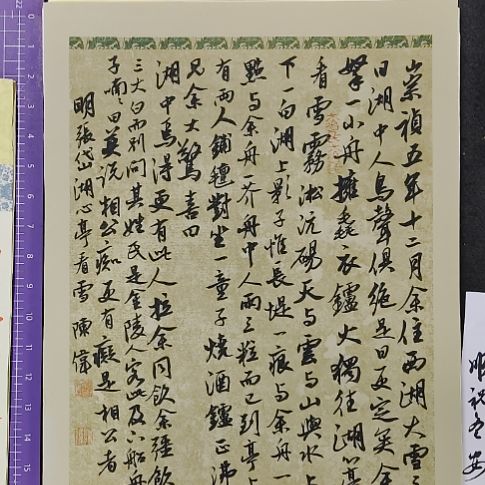 崇禎五年十二月余住西湖大雪三
日湖中人鳥聲俱絕是日更定矣余
拏一小舟擁毳衣鑪火獨往湖心亭
看雪霧淞沆碭天与雲与山與水上
下一白湖上影子惟長堤一痕与余舟一
點与余舟一芥舟中人兩三粒而已到亭上
有兩人鋪氈對坐一童子燒酒鑪正沸
見余大驚喜曰
湖中焉得更有此人拉余同飲余強飲
三大白而別問其姓氏是金陵人客此及下船舟
子喃喃曰莫說相公痴更有癡是相公者
明張岱湖心亭看雪 陳偉